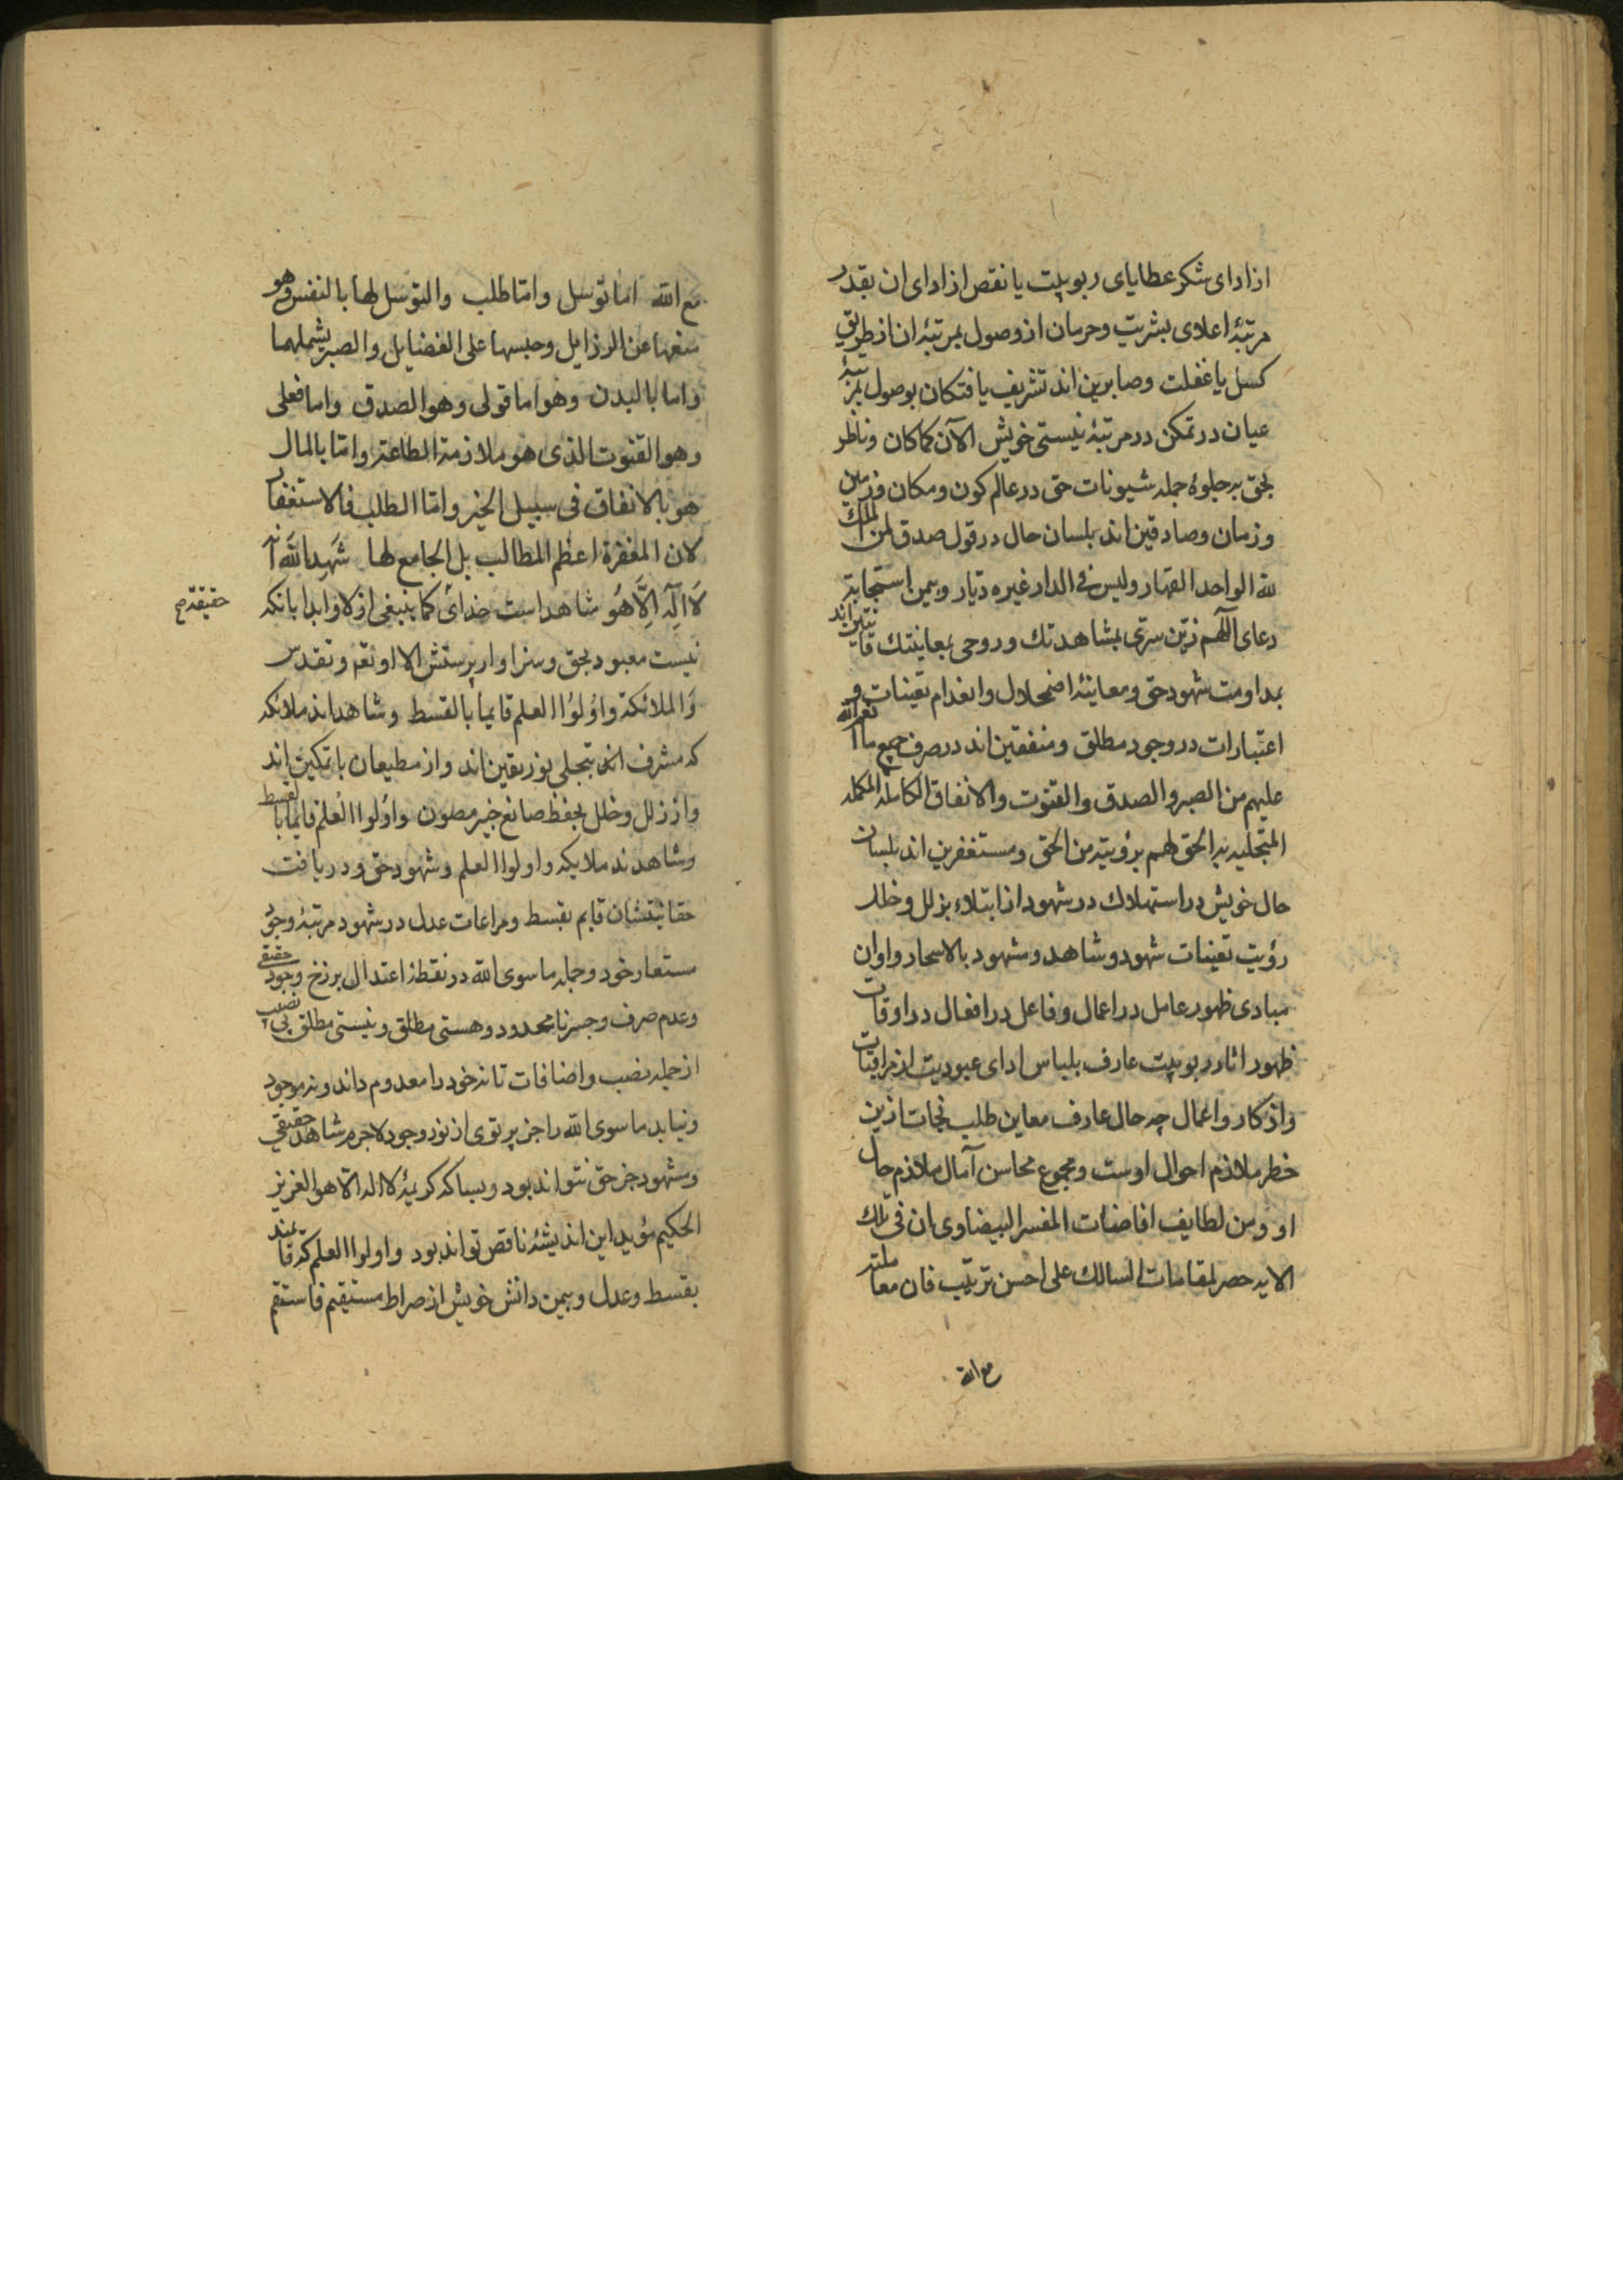 از ادای شکر عطایای ربوبیت یا نقص از ادای ان بقدر
مرتبهٔ اعلاوی بشریت وحرمان از وصول بمرتبهٔ ان از طریق
کسل یا غفلت وصابرین اند تشریف یافتکان بوصول بمرتبهٔ
عیان در تمکن در مرتبهٔ نیستی خویش الآن کماکان وناظر
بحق بر جلوهٔ جمله شیونات حق در عالم کون ومکان وزمین
وزمان وصادقین اند بلسان حال در قول صدق لمن الملک
لله الواحد القهار ولیس فی الدار غیره دیار وبیمن استجابة
دعای اللهم زین سرّی بمشاهدتك وروحی بمعاینتك قانتین اند
بمداومت شهود حق ومعاینهٔ اضمحلال وانعدام تعینات و
اعتبارات در وجود مطلق ومنفقین اند در صرف جمیع ما انعم الله
علیهم من الصبر والصدق والقنوت والانفاق الکامله المکمله
المتجلیه به الحق لهم برؤیته من الحق ومستغفرین اند بلسان
حال خویش در استهلاك در شهود از ابتلاء بزلل وخلل
رؤیت تعینات شهود وشاهد ومشهود بالاسحار واوان
مبادی ظهور عامل در اعمال وفاعل در افعال در اوقات
ظهور اثار ربوبیت عارف بلباس ادای عبودیت از مراقبات
واذکار واعمال چه حال عارف معاین طلب نجات ازین
خطر ملازم احوال اوست ومجموع محاسن آمال ملازم حال
او ومن لطایف افاضات المفسر البیضاوی ان فی تلك
الایه حصر لمقامات السالك علی احسن ترتیب فان معاملته
مع الله
مع الله اما توسل واما طلب والتوسل لها بالنفس وهو
منعها عن الرذایل وحبسها علی الفضایل والصبر یشملهما
واما بالبدن وهو اما قولی وهو الصدق واما فعلی
وهو القنوت الذی هو ملازمة الطاعة واما بالمال
هو بالانفاق فی سبیل الخیر واما الطلب فالاستغفار
لان المغفرة اعظم المطالب بل الجامع لها شَهِدَ اللهَ اَنّه
لَا اِلٰهَ اِلَّا هُو شاهد است خدای کما ینبغی ازلا وابدا بانکه
حقیقة صح
نیست معبود بحق وسزاوار پرستش الا او تعم وتقدس
وَالملائکة واُولُوا العلم قایماً بالقسط وشاهد اند ملائکه
که مشرف اند بتجلی نور یقین اند واز مطیعان با تمکین اند
واز زلل وخلل بحفظ صانع خبیر مصون واُولوا العلم قایما بالقسط
وشاهدند ملایکه واولوا العلم وشهود حق ودر یافت
حقانیتشان قایم بقسط ومراعات عدل در شهود مرتبهٔ وجود
مستعار خود وجمله ما سوی الله در نقطهٔ اعتدال برزخ وجود حقیقی
وعدم صرف وجبر نامحدود وهستی مطلق ونیستی مطلق بی نصیب
از جمله نصب واضافات تا نه خود را معدوم داند ونه موجود
ونیابد ما سوی الله را جز پرتوی از نور وجود لاجرم شاهد حقیقی
ومشهود جز حق نتواند بود وبسا که کریمهٔ لا اله الّا هو العزیز
الحکیم مؤید این اندیشهٔ ناقص تواند بود واولوا العلم که قایمند
بقسط وعدل وبیمن دانش خویش از صراط مستقیم فاستقم